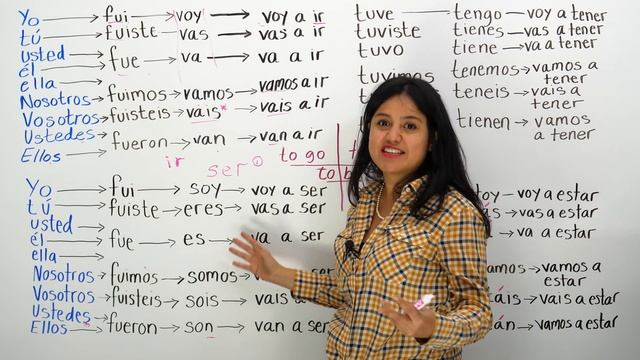 Yo → fui → voy → voy a ir
tú → fuiste → vas → vas a ir
usted
él → fue → va → va a ir
ella
Nosotros → fuimos → vamos → vamos a ir
Vosotros → fuisteis → vais* → vais a ir
Ustedes
Ellos → fueron → van → van a ir
ir
ser
to go
to b
Yo → fui → soy → voy a ser
tú → fuiste → eres → vas a ser
usted
él → fue → es → va a ser
ella
Nosotros → fuimos → somos → ser
Vosotros → fuisteis → sois → vais a ser
Ustedes
Ellos → fueron → son → van a ser
tuve → tengo → voy a tener
tuviste tienes → vas a tener
tuvo tiene → va a tener
tuvimos tenemos → vamos a
tener
teneis → vais a
tener
tienen → vamos
a tener
toy → voy a estar
vas a estar
va a estar
amos → vamos a
estar
áis → vais a estar
án → vamos a estar